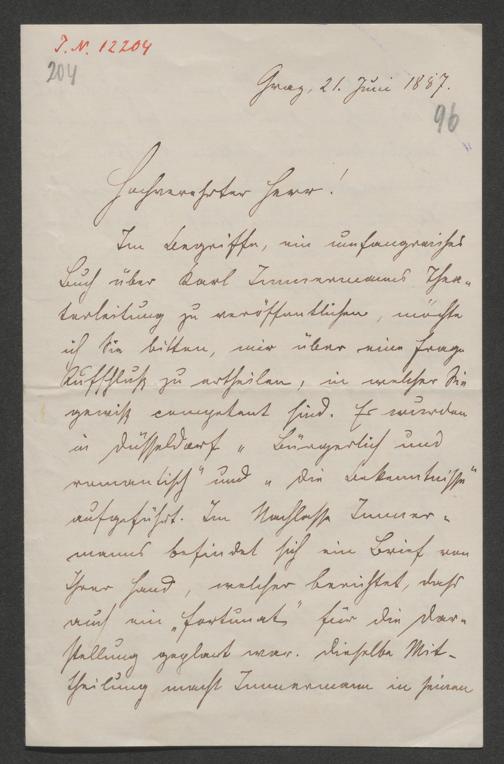 I.N. 12204
204
Graz, 21. Juni 1887.
96
Hochverehrter Herr!
Im Begriffe, ein umfangreiches
Buch über Karl Immermanns Thea-
terleitung zu veröffentlichen, möchte
ich Sie bitten, mir über eine Frage
Aufschluß zu ertheilen, in welcher Sie
gewiß competent sind. Es wurden
in Düsseldorf „Bürgerlich und
romantisch" und „die Bekenntnisse"
aufgeführt. Im Nachlasse Immer-
manns befindet sich ein Brief von
Ihrer Hand, welcher berichtet, daß
auch ein „Fortunat" für die Dar-
stellung geplant war. Dieselbe Mit-
theilung macht Immermann in seinen